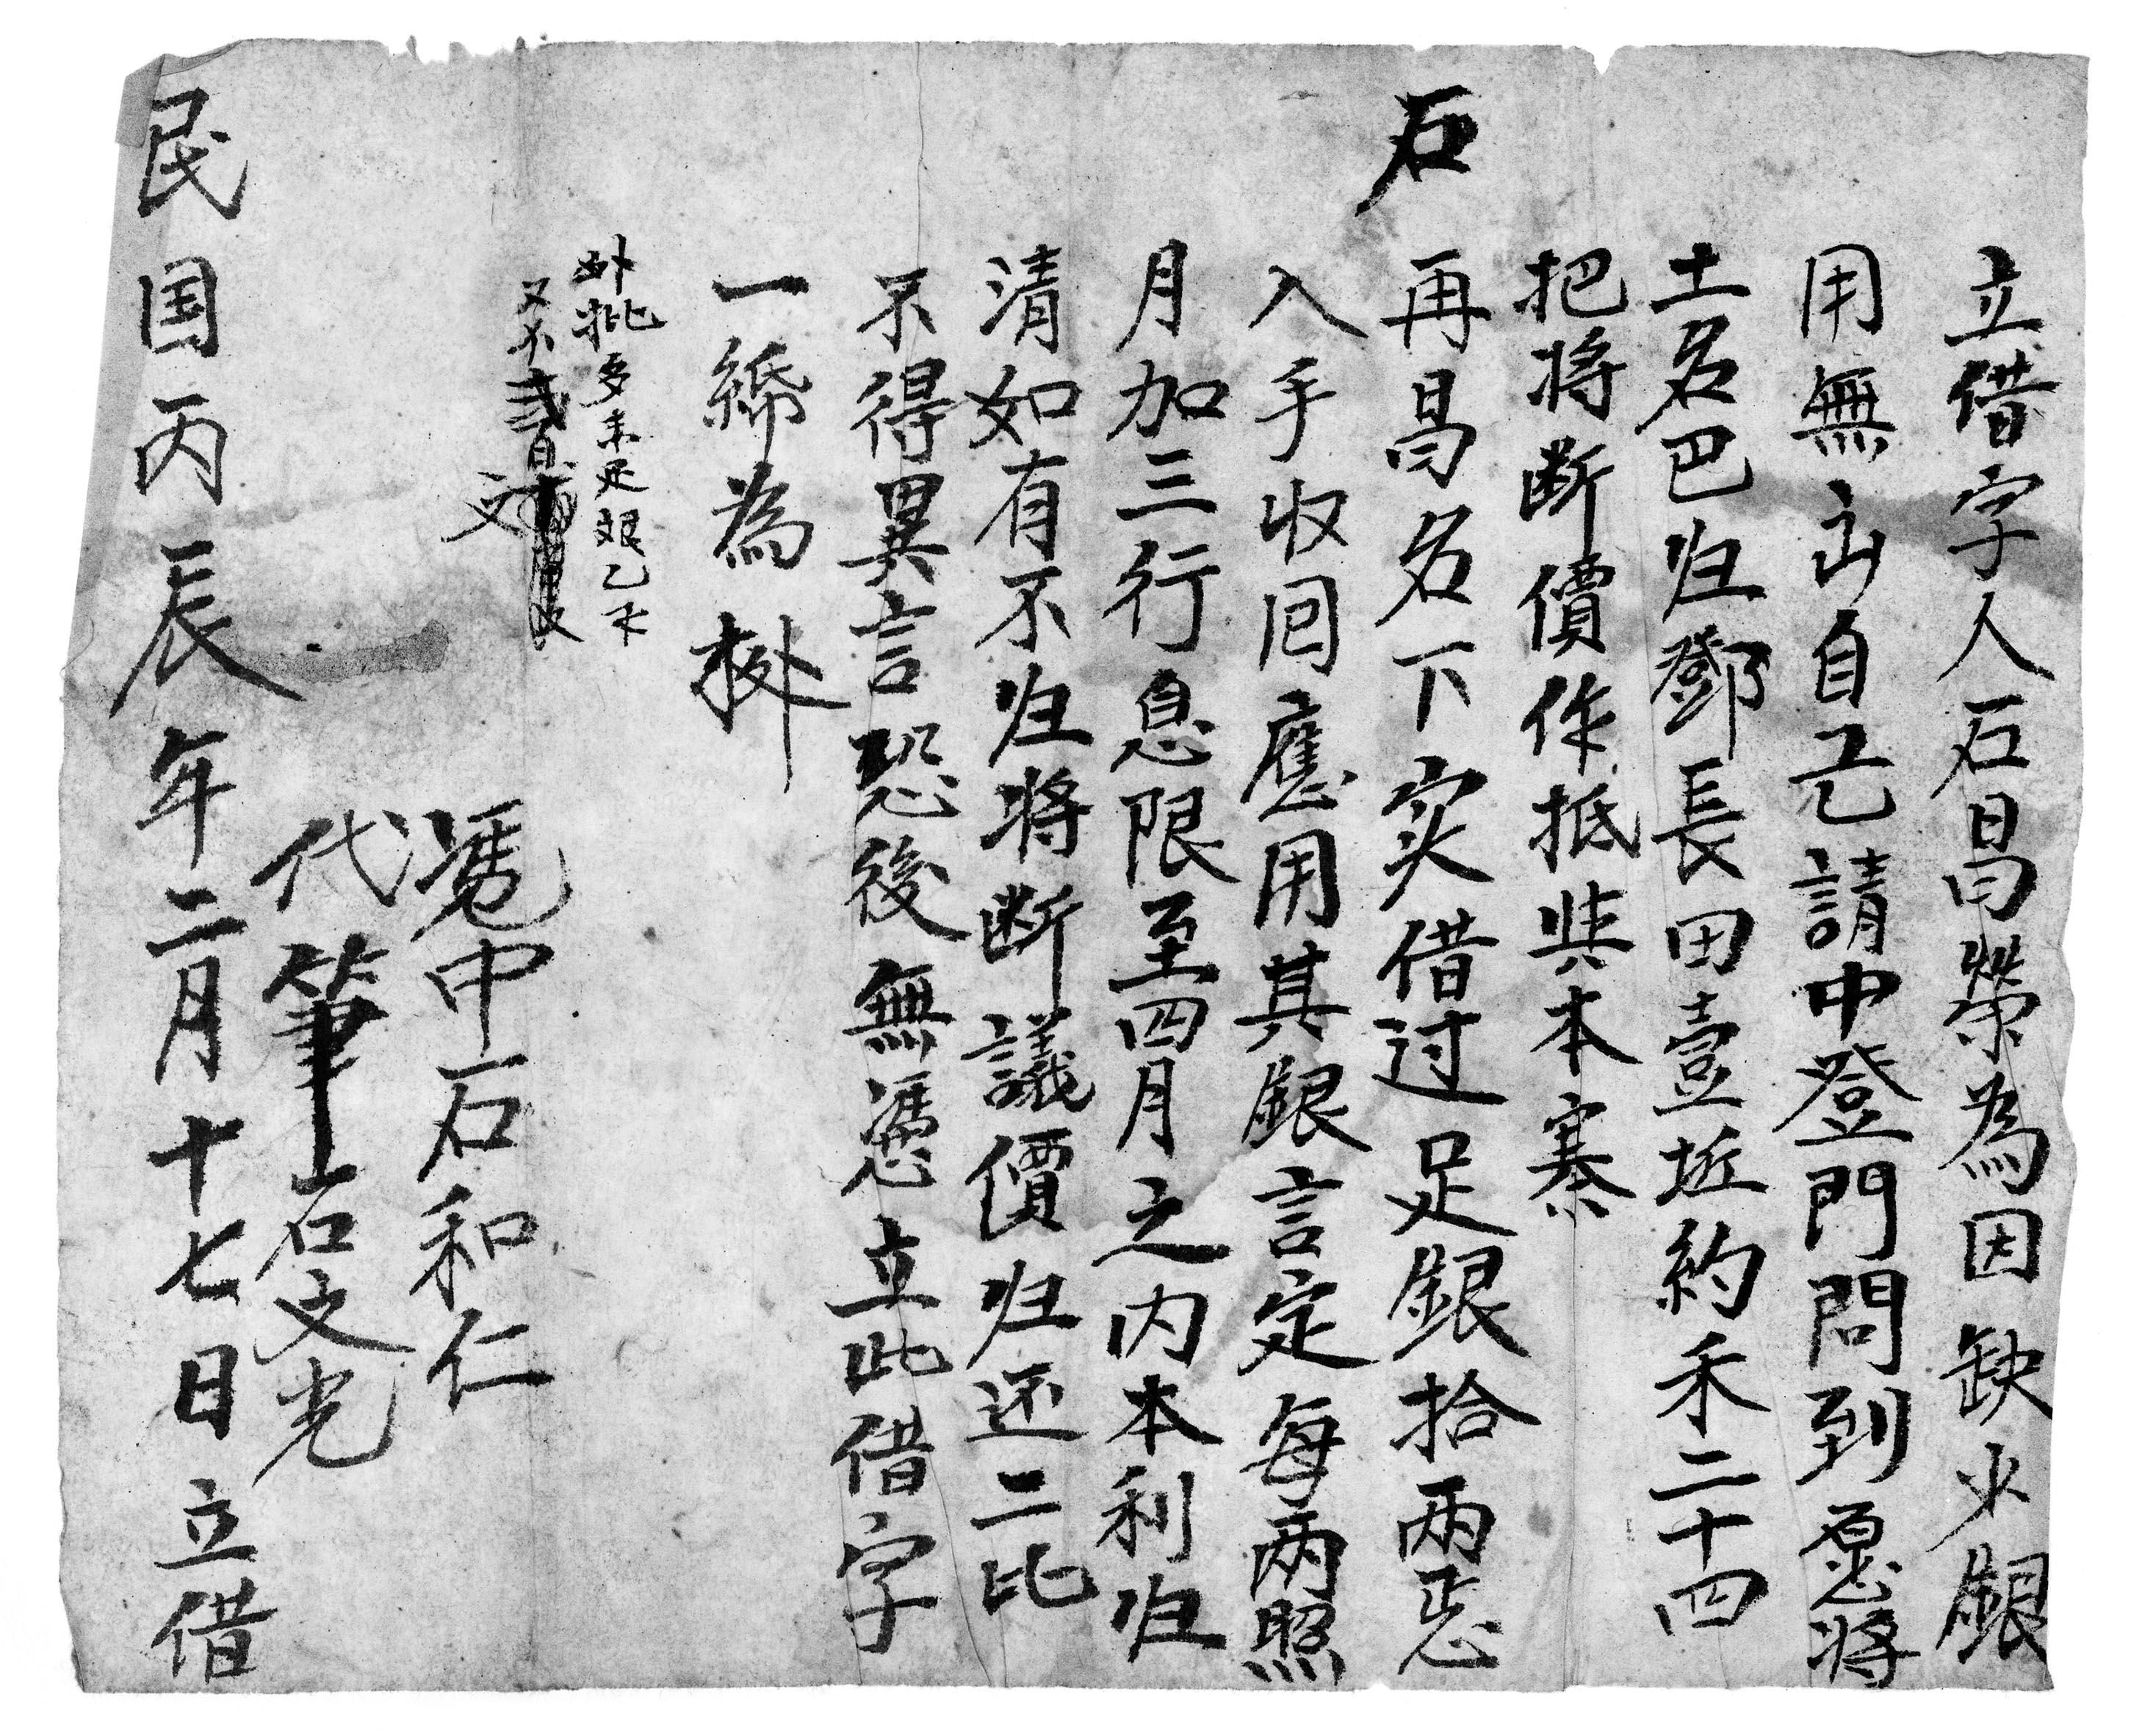 立借字人石昌榮為因缺少銀
用無出自己請中登門問到愿將
土名巴归鄧長田壹坵約禾二十四
把將断價作抵與本寨
石再昌名下实借过足銀拾兩忎
入手收囘應用其銀言定每兩照
月加三行息限至四月之内本利归
清如有不归將断議價归还二比
不得異言恐後無憑立此借字
一紙為據
外批多未足艮乙
又
文
憑中石和仁
代筆石文光
民国丙辰年二月十七日立借